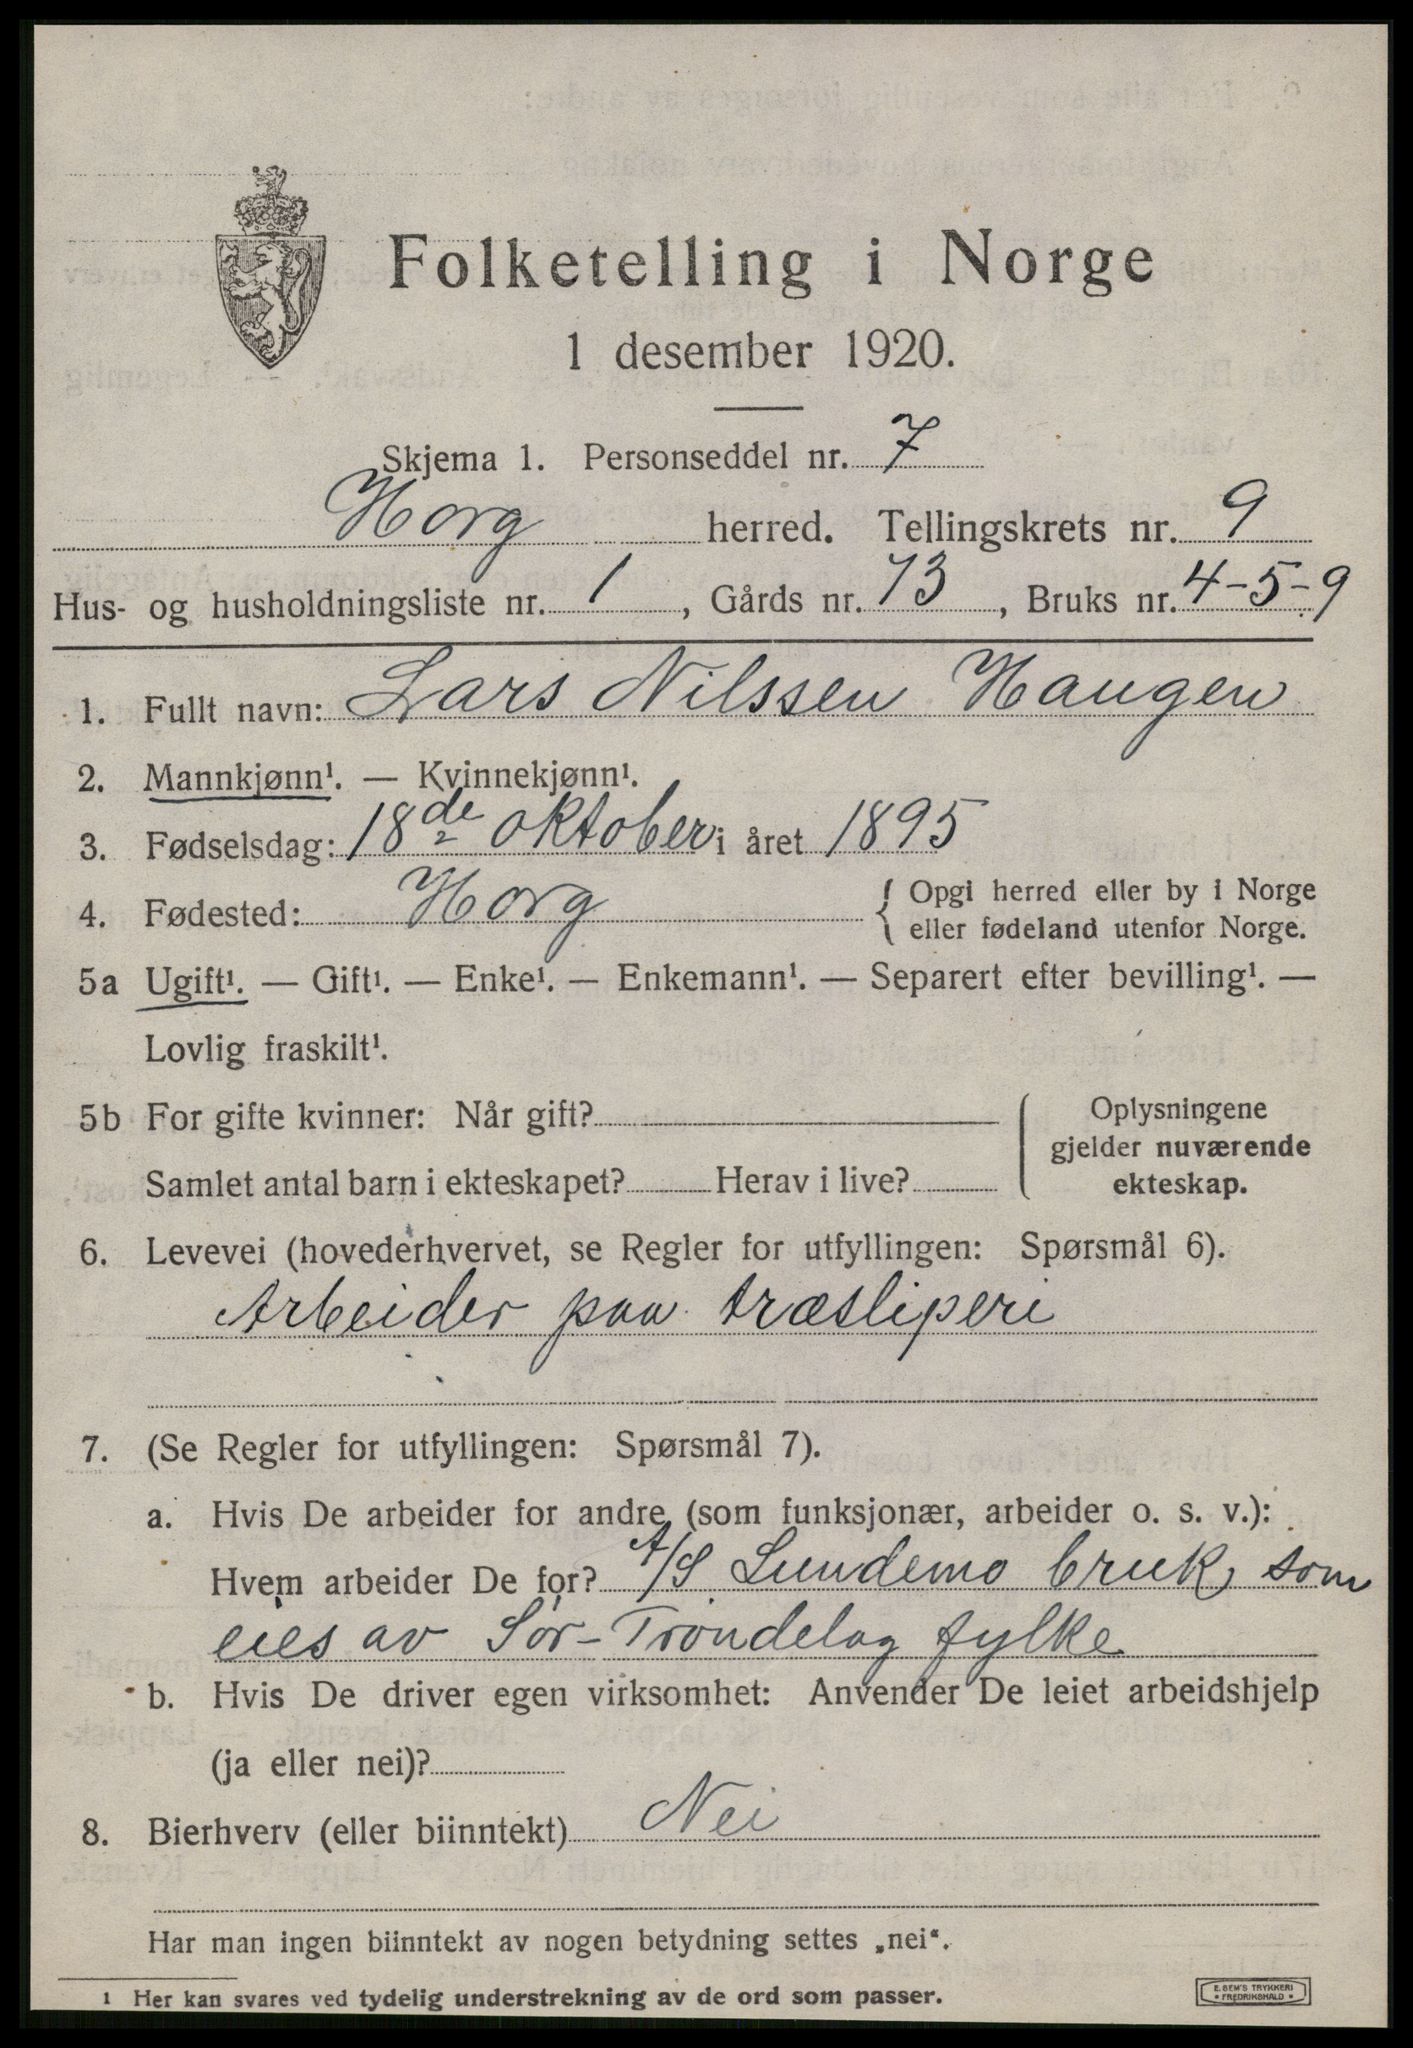 Folketelling i Norge
1 desember 1920.
Skjema 1. Personseddel nr. 7
Horg herred. Tellingskrets nr. 9
Hus- og husholdningsliste nr. 1, Gårds nr. 73, Bruks nr. 4-5-9
1. Fullt navn: Lars Nilssen Haugen
2. Mannkjønn¹. — Kvinnekjønn¹.
3. Fødselsdag: 18de oktober i året 1895
4. Fødested: Horg { Opgi herred eller by i Norge
eller fødeland utenfor Norge.
5a Ugift¹. — Gift¹. — Enke¹. — Enkemann¹. — Separert efter bevilling¹. —
Lovlig fraskilt¹.
5b For gifte kvinner: Når gift?
Samlet antal barn i ekteskapet? Herav i live?
Oplysningene
gjelder nuværende
ekteskap.
6. Levevei (hovederhvervet, se Regler for utfyllingen: Spørsmål 6).
Arbeider paa træsliperi
7. (Se Regler for utfyllingen: Spørsmål 7).
a. Hvis De arbeider for andre (som funksjonær, arbeider o. s. v.):
Hvem arbeider De for? A/S Lundemo bruk som
eies av Sør-Trøndelag fylke
b. Hvis De driver egen virksomhet: Anvender De leiet arbeidshjelp
(ja eller nei)?
8. Bierhverv (eller biinntekt) Nei
Har man ingen biinntekt av nogen betydning settes „nei“.
¹ Her kan svares ved tydelig understrekning av de ord som passer.
E. SEM'S TRYKKERI
• FREDRIKSHALD •